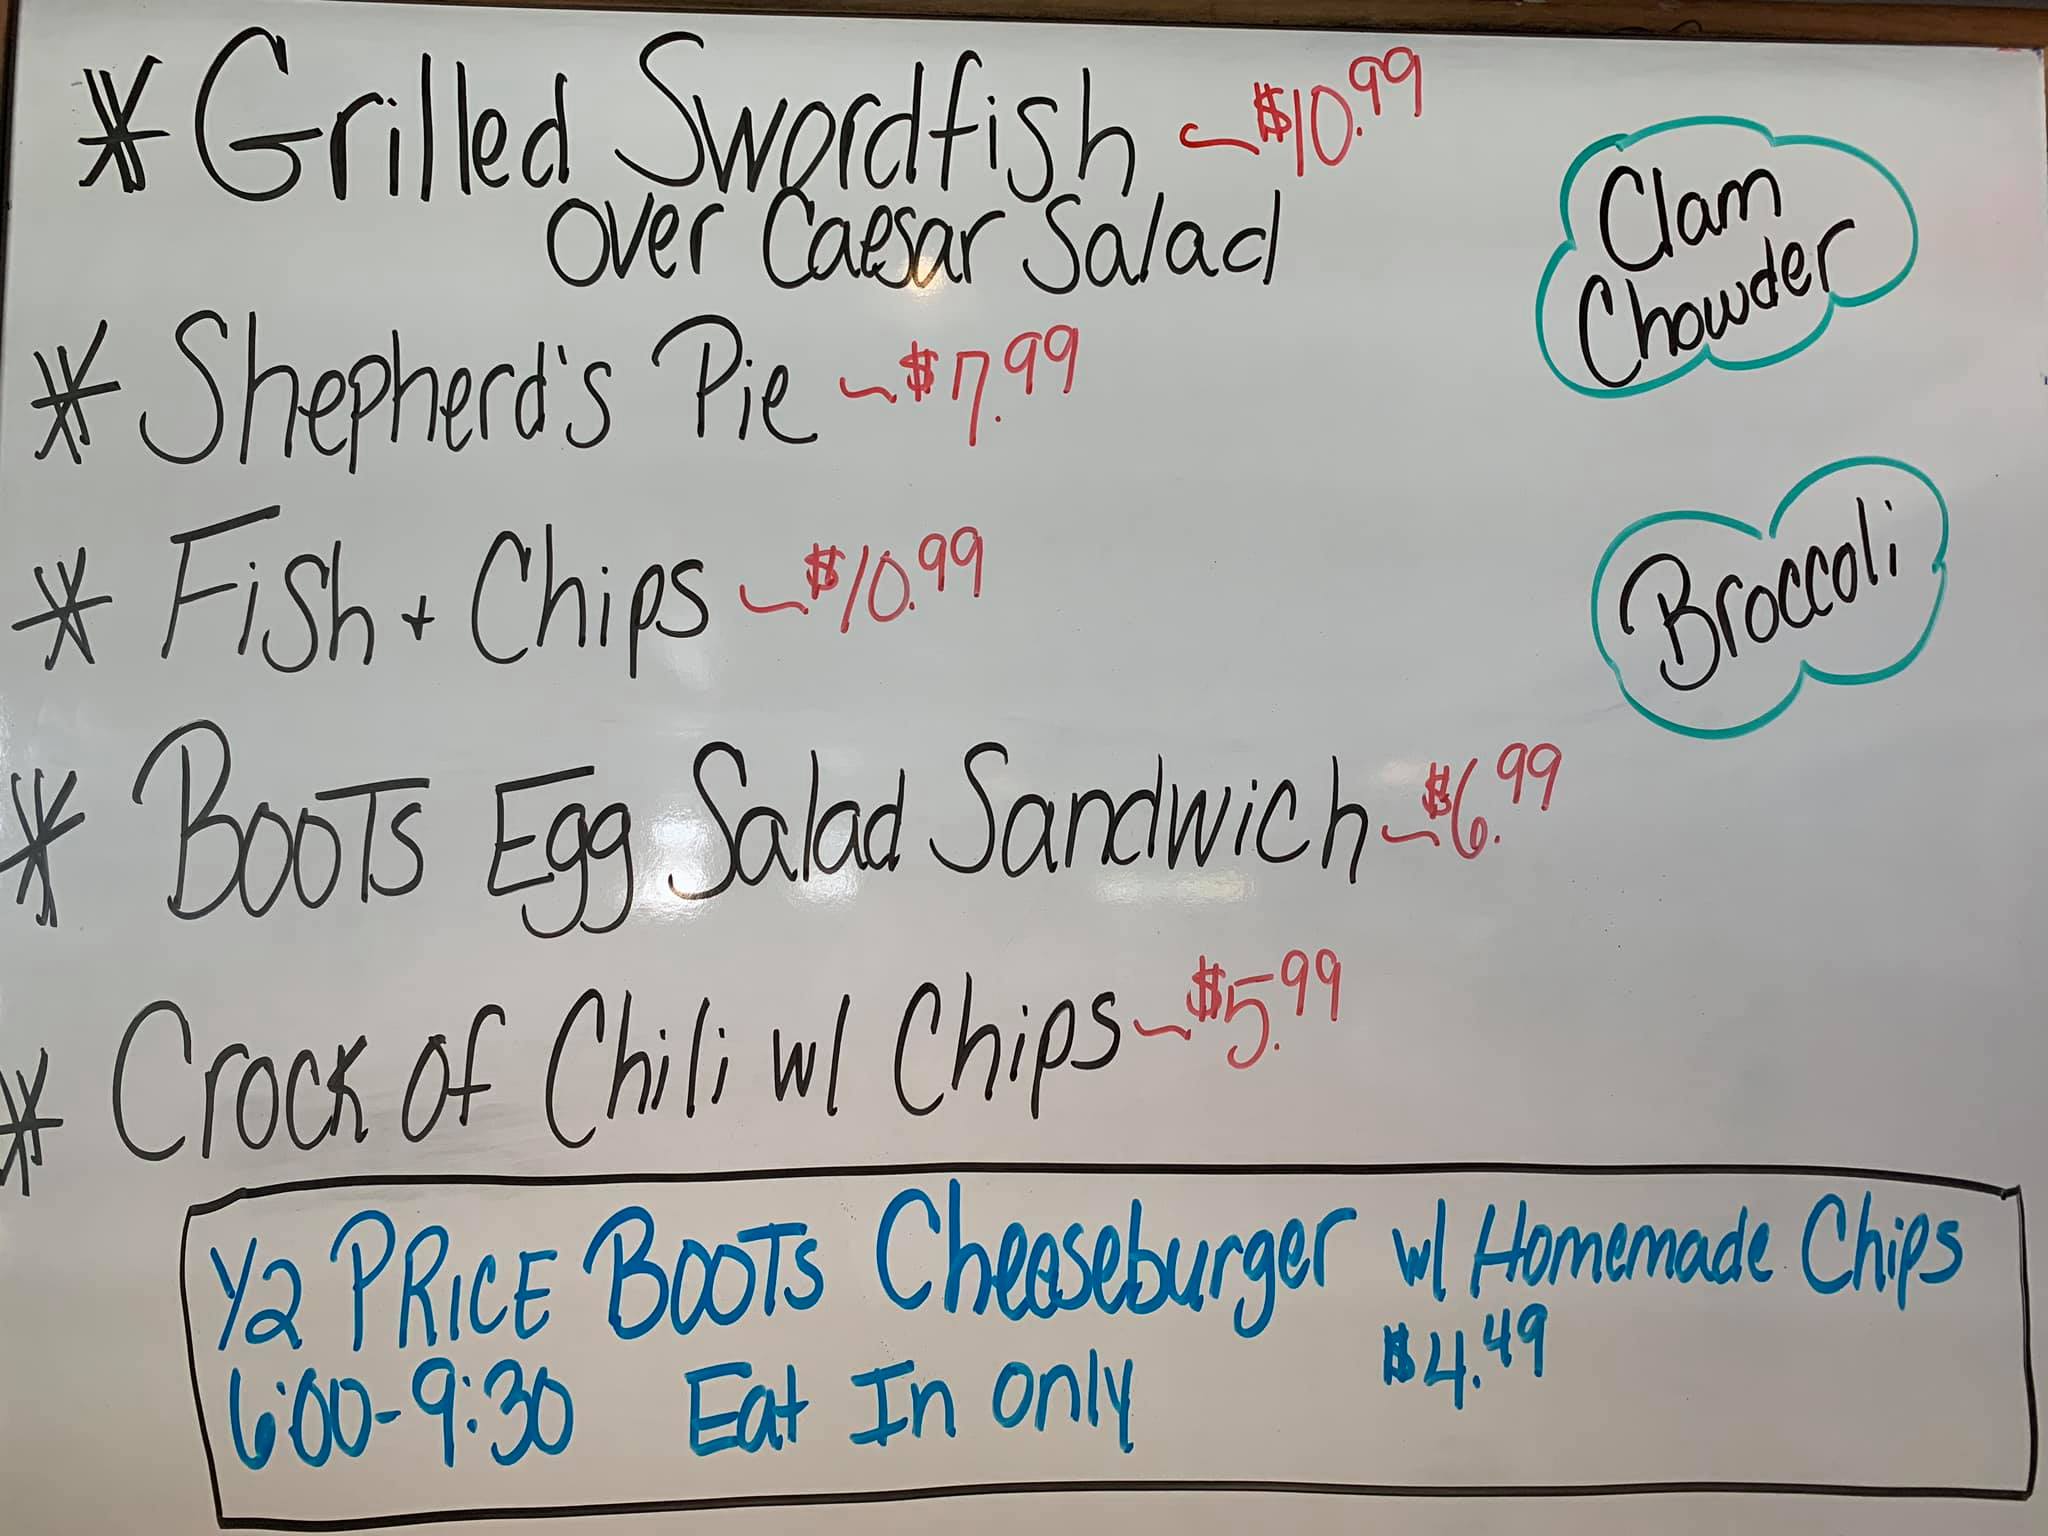 * Grilled Swordfish ~ $10.99
over Caesar Salad
Clam
Chowder
* Shepherd's Pie ~ $7.99
* Fish + Chips ~ $10.99
Broccoli
* BOOTS Egg Salad Sandwich ~ $6.99
* Crock of Chili w/ Chips ~ $5.99
1/2 PRICE BOOTS Cheeseburger w/ Homemade Chips
$4.49
6:00-9:30 Eat In only